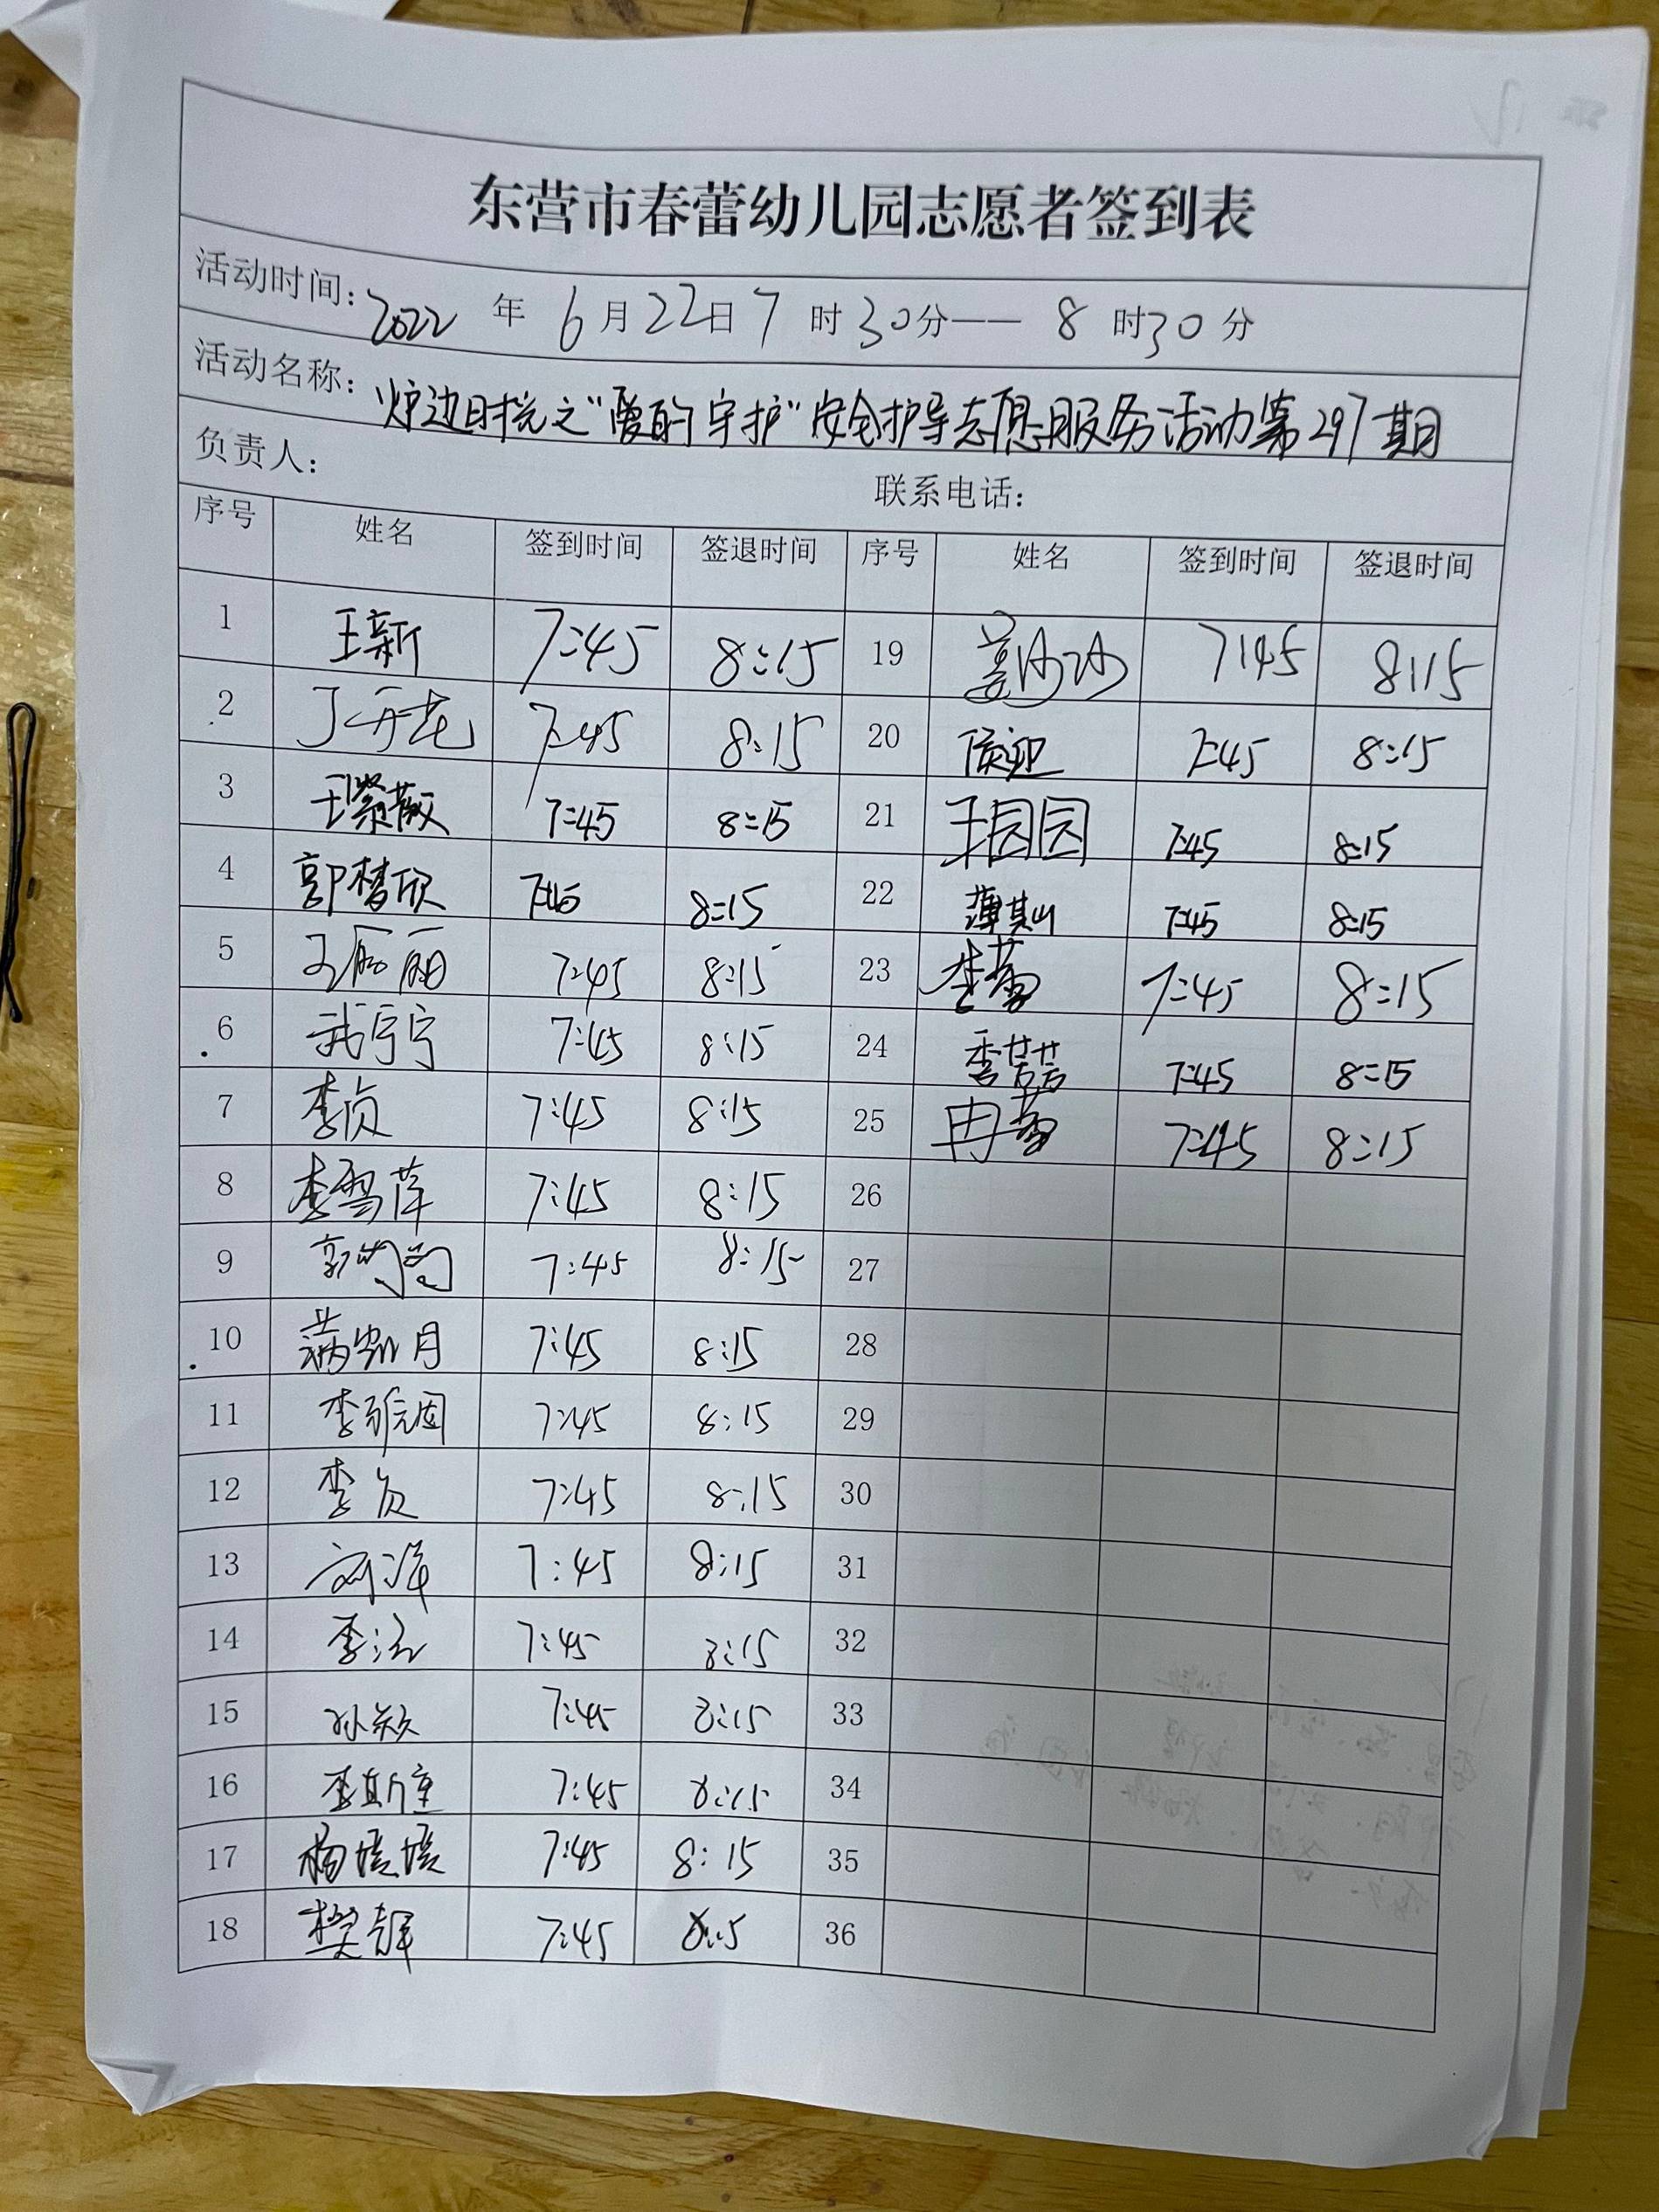 东营市春蕾幼儿园志愿者签到表
活动时间：2022 年 6 月 22 日 7 时 30 分—— 8 时 30 分
活动名称：“炉边时光之“爱的守护”安全护导志愿服务活动第297期
负责人： 联系电话：
序号 姓名 签到时间 签退时间 序号 姓名 签到时间 签退时间
1 王新 7:45 8:15 19 姜沙沙 7:45 8:15
2 丁开花 7:45 8:15 20 侯迎 7:45 8:15
3 王紫薇 7:45 8:15 21 王园园 7:45 8:15
4 郭梦欣 7:45 8:15 22 薄其山 7:45 8:15
5 王丽丽 7:45 8:15 23 李蕾 7:45 8:15
6 武宁宁 7:45 8:15 24 李芸芸 7:45 8:15
7 李贞 7:45 8:15 25 冉蕾 7:45 8:15
8 李雪萍 7:45 8:15 26
9 7:45 8:15 27
10 7:45 8:15 28
11 7:45 8:15 29
12 李贞 7:45 8:15 30
13 7:45 8:15 31
14 7:45 8:15 32
15 孙颖 7:45 8:15 33
16 7:45 8:15 34
17 杨媛媛 7:45 8:15 35
18 樊辉 7:45 8:15 36